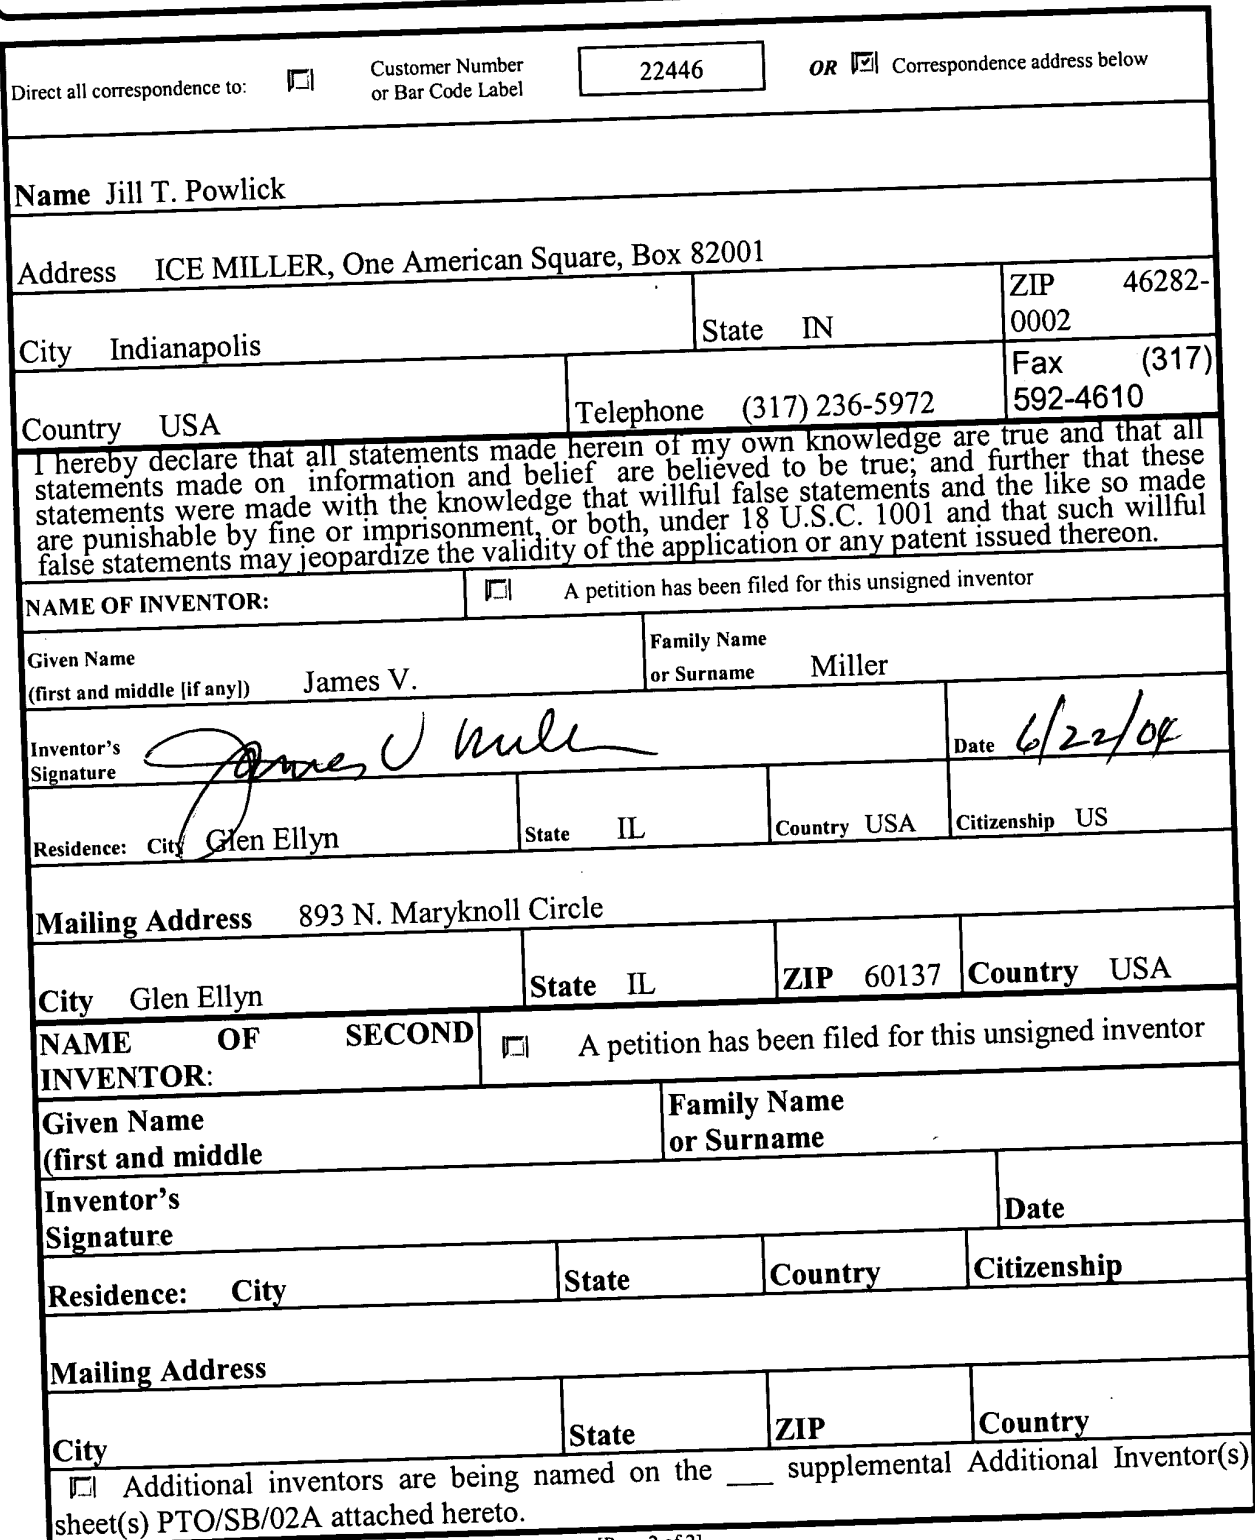 Direct all correspondence to: Customer Number or Bar Code Label 22446 OR Correspondence address below
Name Jill T. Powlick
Address ICE MILLER, One American Square, Box 82001
City Indianapolis State IN ZIP 46282-0002
Country USA Telephone (317) 236-5972 Fax (317) 592-4610
I hereby declare that all statements made herein of my own knowledge are true and that all
statements made on information and belief are believed to be true; and further that these
statements were made with the knowledge that willful false statements and the like so made
are punishable by fine or imprisonment, or both, under 18 U.S.C. 1001 and that such willful
false statements may jeopardize the validity of the application or any patent issued thereon.
NAME OF INVENTOR: A petition has been filed for this unsigned inventor
Given Name
(first and middle [if any]) James V.
Family Name
or Surname Miller
Inventor's
Signature James V Miller Date 6/22/04
Residence: City Glen Ellyn State IL Country USA Citizenship US
Mailing Address 893 N. Maryknoll Circle
City Glen Ellyn State IL ZIP 60137 Country USA
NAME OF SECOND
INVENTOR:
A petition has been filed for this unsigned inventor
Given Name
(first and middle
Family Name
or Surname
Inventor's
Signature
Date
Residence: City State Country Citizenship
Mailing Address
City State ZIP Country
Additional inventors are being named on the ___ supplemental Additional Inventor(s)
sheet(s) PTO/SB/02A attached hereto.